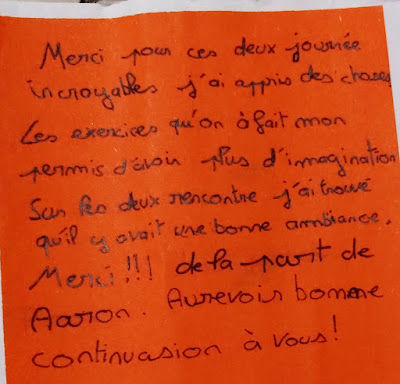 Merci pour ces deux journée
incroyables j'ai appris des choses
Les exercices qu'on à fait mon
permis d'avoir plus d'imagination
Sur les deux rencontre j'ai trouvé
qu'il y avait une bonne ambiance.
Merci!!! de la part de
Aaron. Aurevoir bonne
continuasion à vous!